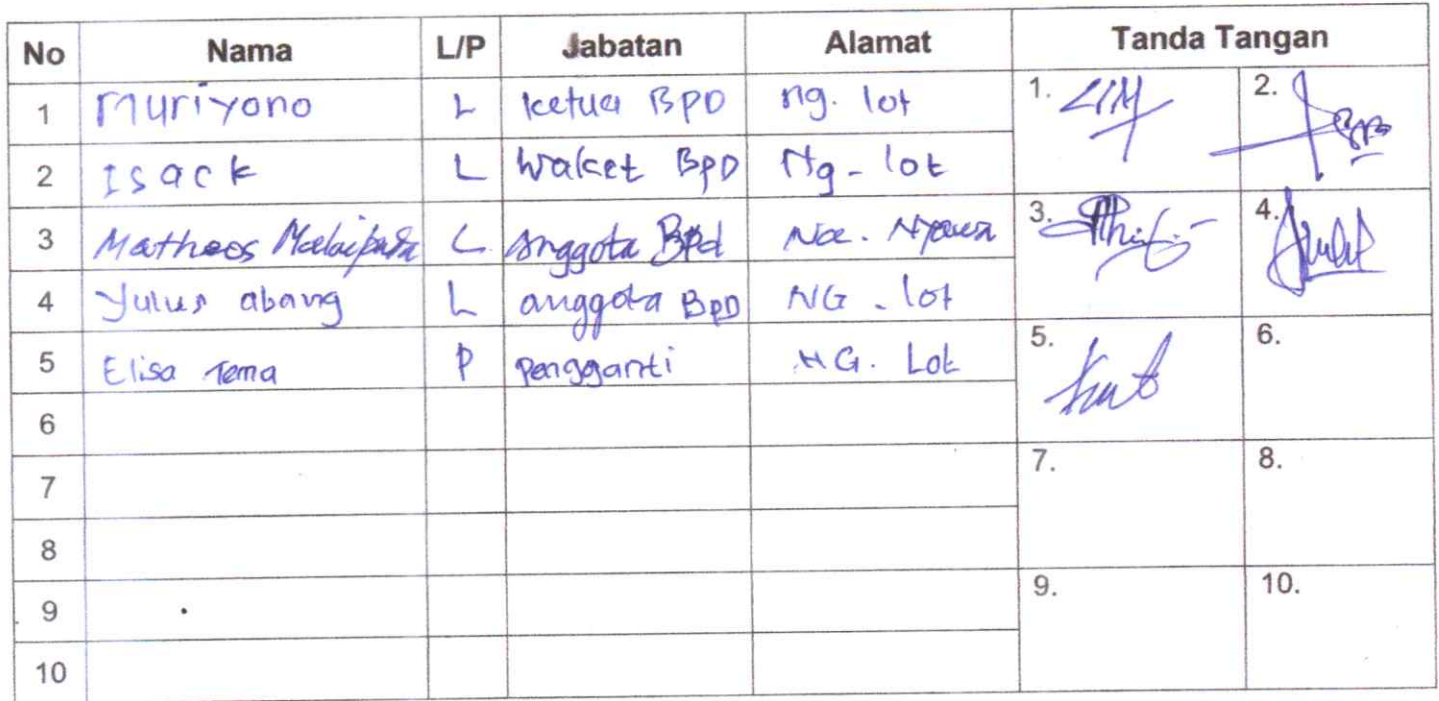 No Nama L/P Jabatan Alamat Tanda Tangan
1 Muriyono L ketua BPD ng. lot 1. 2.
2 Isack L Waket BPD Ng - lot
3 Matheos L Anggota Bpd 3. 4.
4 Yulus abang L anggota BPD NG - lot
5 Elisa Tema P Pengganti NG. Lot 5. 6.
6
7 7. 8.
8
9 9. 10.
10